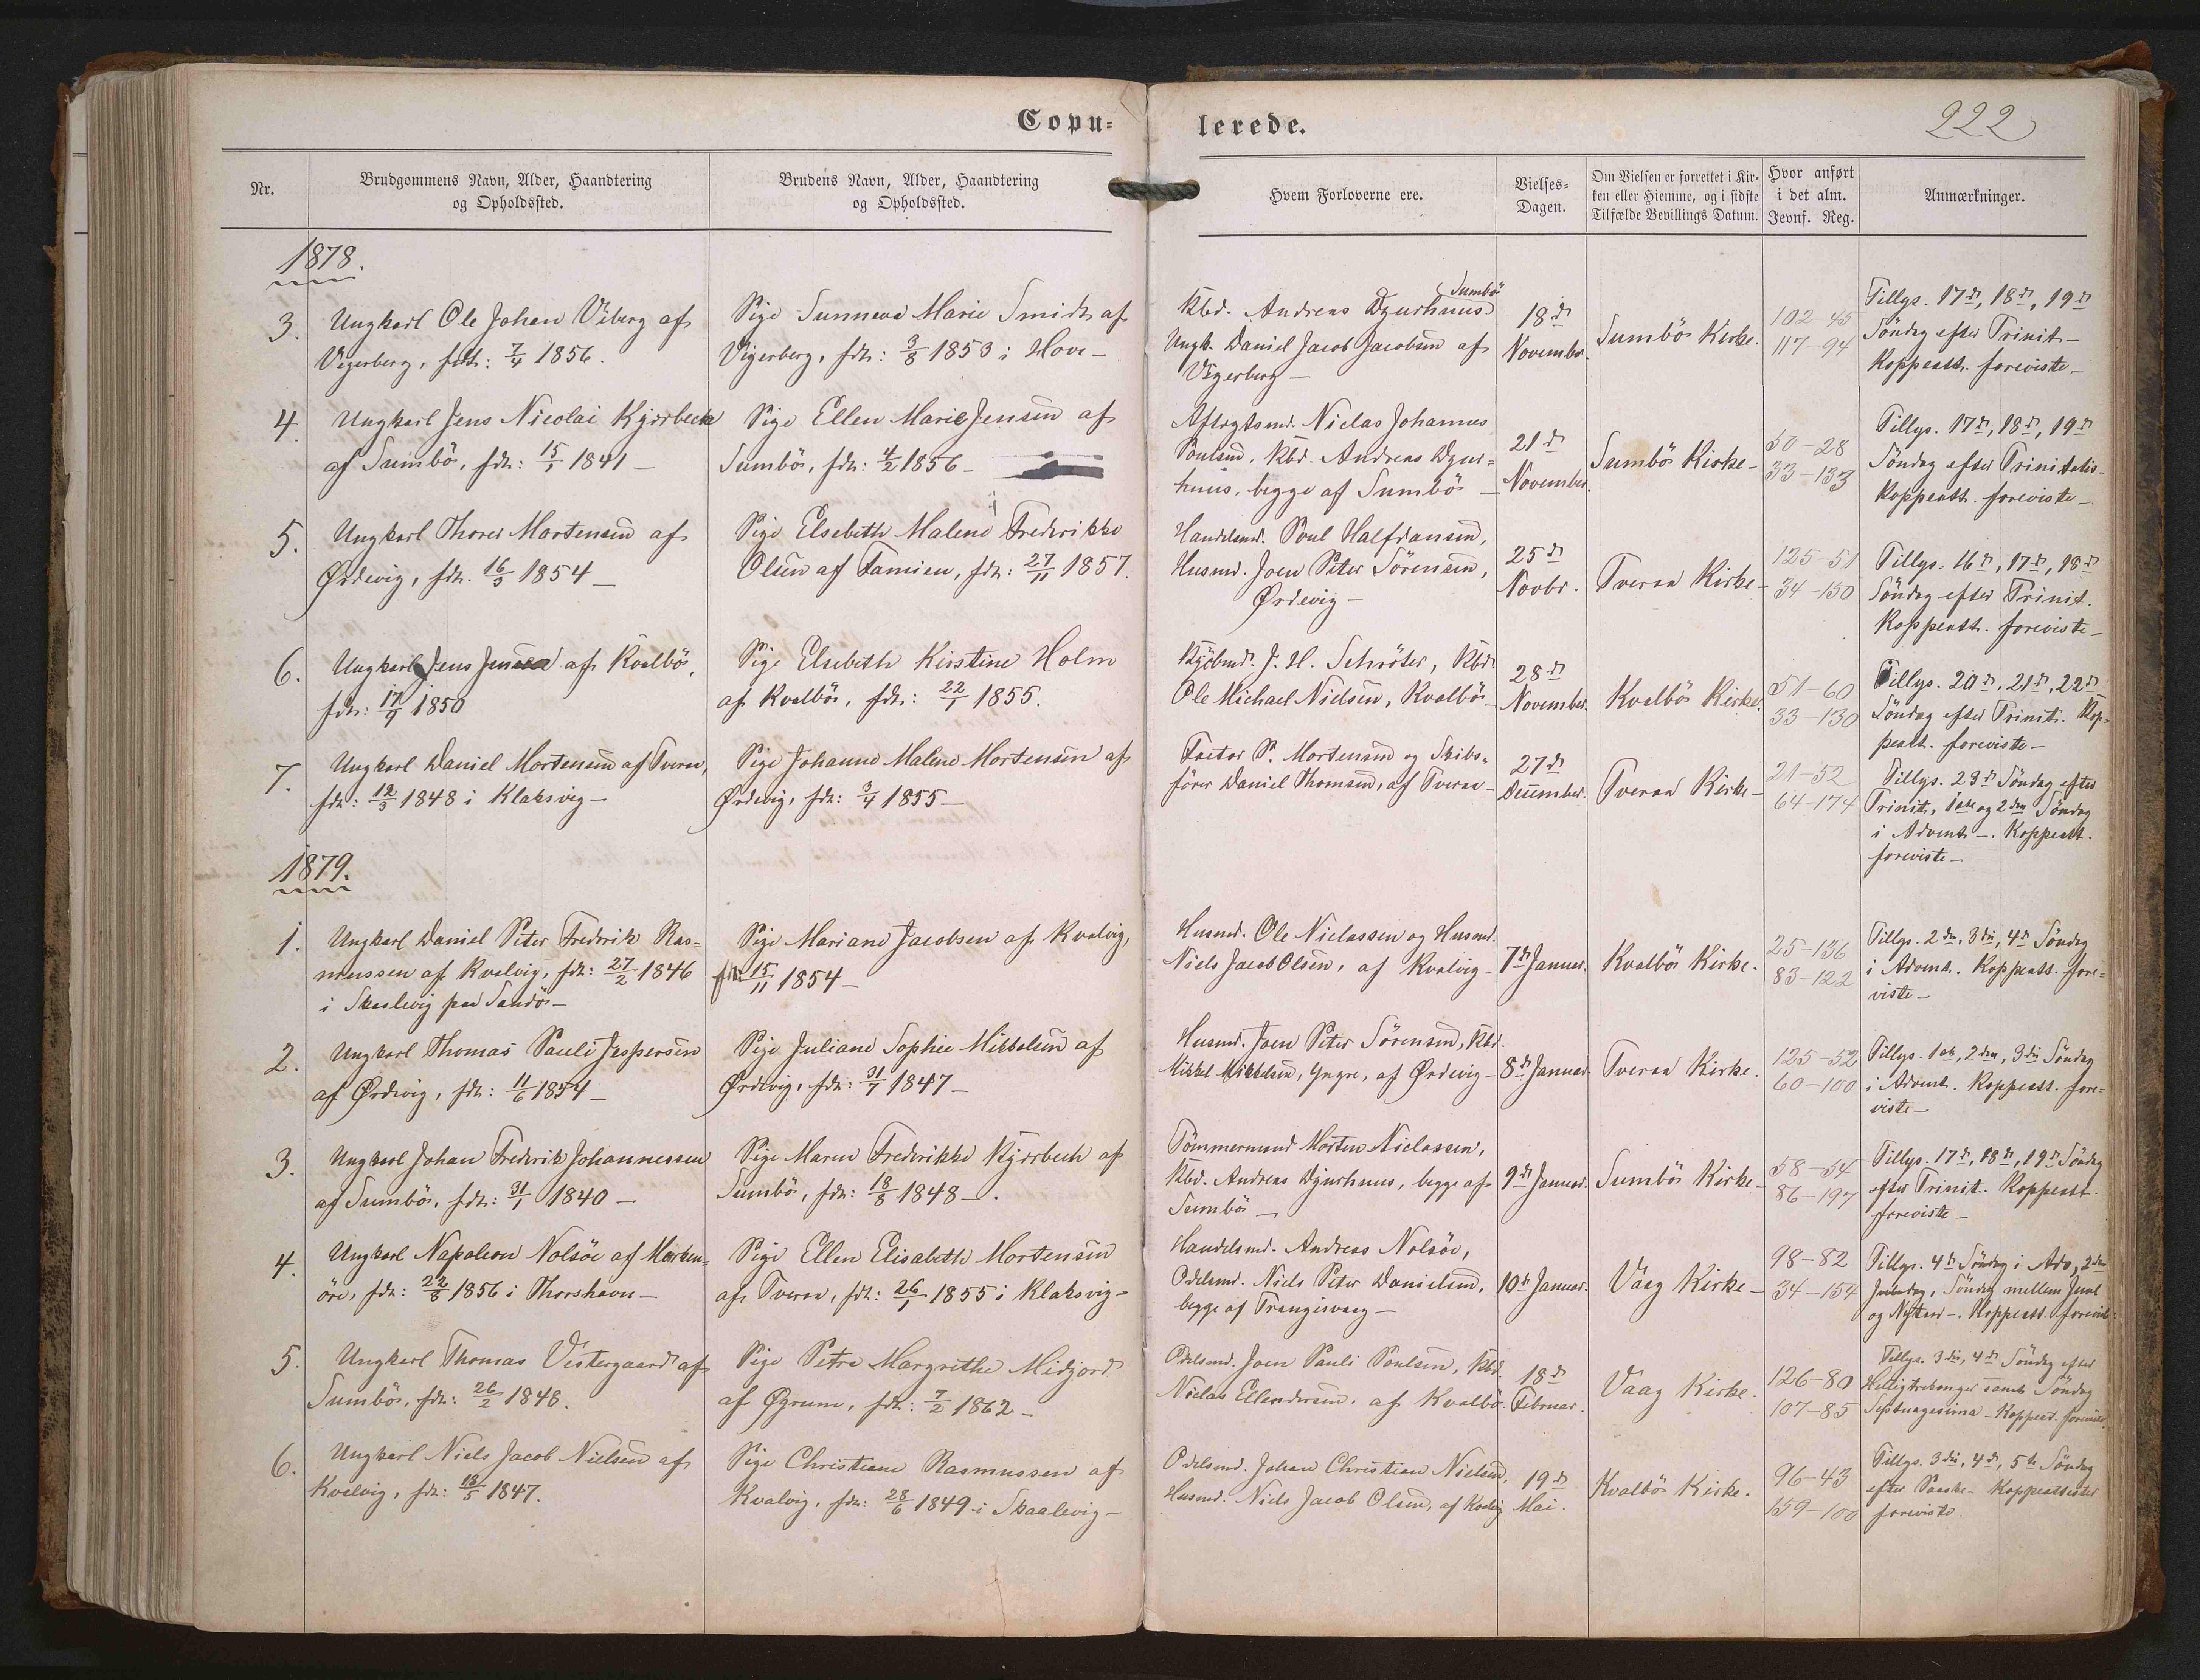 Copu=
lerede.
222
Nr.
Brudgommens Navn, Alder, Haandtering
og Opholdssted.
Brudens Navn, Alder, Haandtering
og Opholdssted.
Hvem Forloverne ere.
Vielses-
Dagen.
Om Vielsen er forrettet i Kir-
ken eller Hiemme, og i sidste
Tilfælde Bevillings Datum.
Hvor anført
i det alm.
Jevnf. Reg.
Anmærkninger.
1878.
3.
Ungkarl Ole Johan Viberg af
Vigerberg, fdt: 7/4 1856.
Pige Sunneva Marie Smidt af
Vigerberg, fdt: 3/8 1853 i Hove-
Sumbö
Kbd. Andreas Djurhuus
Ungk. Daniel Jacob Jacobsen af
Vigerberg -
18d
November.
Sumbö Kirke.
102-45
117-94
Tillys. 17d, 18d, 19d
Söndag efter Trinit-
Koppeatt. foreviste-
4.
Ungkarl Jens Nicolai Kjærbech
af Sumbö, fdt: 15/1 1841-
Pige Ellen Marie Jensen af
Sumbö, fdt: 4/2 1856-
Aftægtsmd. Niclas Johannes
Poulsen, Kbd. Andreas Djur=
huus, begge af Sumbö -
21d
November.
Sumbö Kirke-
50-28
33-133
Tillys. 17d, 18d, 19d
Söndag efter Trinitatis-
Koppeatt. foreviste-
5.
Ungkarl Thorer Mortensen af
Ørdevig, fdt. 16/3 1854-
Pige Elsebeth Malene Frederikke
Olsen af Famien, fdt: 27/11 1857.
Handelsmd. Poul Halfdansen,
Husmd. Joen Peter Sörensen,
Ørdevig-
25d
Novbr.
Tveraa Kirke-
125-51
34-150
Tillys: 16d, 17d, 18d
Söndag efter Trinit.
Koppeatt. foreviste-
6.
Ungkarl Jens Jensen af Kvalbö,
fdt: 17/9 1850
Pige Elsebeth Kirstine Holm
af Kvalbö, fdt: 22/1 1855.
Kjöbmd. J. H. Schröter, Kbd.
Ole Michael Nielsen, Kvalbö-
28d
November.
Kvalbö Kirke.
51-60
33-130
Tillys. 20d, 21d, 22d
Söndag efter Trinit. Kop-
peatt. foreviste-
7.
Ungkarl Daniel Mortensen af Tveraa,
fdt: 12/3 1848 i Klaksvig-
Pige Johanne Malene Mortensen af
Ørdevig, fdt: 3/4 1855-
Factor P. Mortensen og Skibs-
förer Daniel Thomsen, af Tveraa-
27d
December.
Tveraa Kirke-
21-52
64-174
Tillys. 23d Söndag efter
Trinit, 1ste og 2den Söndag
i Advent-. Koppeatt.
foreviste-
1879.
1.
Ungkarl Daniel Peter Frederik Ras=
mussen af Kvalvig, fdt: 27/2 1846
i Skaalevig paa Sandö-
Pige Mariane Jacobsen af Kvalvig,
fdt 15/11 1854-
Husmd. Ole Niclassen og Husmd.
Niels Jacob Olsen, af Kvalvig-
7d Januar.
Kvalbö Kirke.
25-136
83-122
Tillys. 2den, 3die, 4d Söndag
i Advent. Koppeatt. fore=
viste-
2.
Ungkarl Thomas Pauli Jespersen
af Ørdevig, fdt: 11/6 1854-
Pige Juliane Sophie Mikkelsen af
Ørdevig, fdt: 31/7 1847-
Husmd. Joen Peter Sörensen, Kbd.
Mikkel Mikkelsen, Yngre, af Ørdevig-
8d Januar.
Tveraa Kirke.
125-52
60-100
Tillys. 1ste, 2den, 3die Söndag
i Advent. Koppeatt. fore=
viste-
3.
Ungkarl Johan Frederik Johannessen
af Sumbö, fdt: 31/1 1840-
Pige Maren Frederikke Kjærbech af
Sumbö, fdt: 18/8 1848-.
Tömmermand Morten Niclassen,
Kbd. Andreas Djurhuus, begge af
Sumbö-
9d Januar.
Sumbö Kirke-
58-54
86-197
Tillys. 17d, 18d, 19d Söndag
efter Trinit. Koppeatt.
foreviste-
4.
Ungkarl Napoleon Nolsöe af Mörken=
öre, fdt: 22/8 1856 i Thorshavn-
Pige Ellen Elisabeth Mortensen
af Tveraa, fdt: 26/1 1855 i Klaksvig-
Handelsmd. Andreas Nolsöe,
Odelsmd. Niels Peter Danielsen,
begge af Trangisvaag-
10d Januar.
Vaag Kirke-
98-82
34-154
Tillys. 4d Söndag i Adv, 2den
Juledag, Söndag mellem Juul
og Nytaar-. Koppeatt. forevist-
5.
Ungkarl Thomas Vestergaard af
Sumbö, fdt: 26/2 1848.
Pige Petra Margrethe Midjord
af Øgrum, fdt: 7/2 1862-
Odelsmd. Joen Pauli Poulsen, Kbd.
Niclas Ellendersen, af Kvalbö.
18d
Februar.
Vaag Kirke.
126-80
107-85
Tillys. 3die, 4d Söndag efter
Helligtrekonger samt Söndag
Septuagesima-Koppeat. foreviste
6.
Ungkarl Niels Jacob Nielsen af
Kvalvig, fdt: 18/5 1847.
Pige Christiane Rasmussen af
Kvalvig, fdt: 28/6 1849 i Skaalevig-
Odelsmd. Johan Christian Nielsen,
Husmd. Niels Jacob Olsen, af Kvalvig
19d
Mai.
Kvalbö Kirke.
96-43
159-100
Tillys. 3die, 4d, 5te Söndag
efter Paaske- Koppeattester
foreviste.